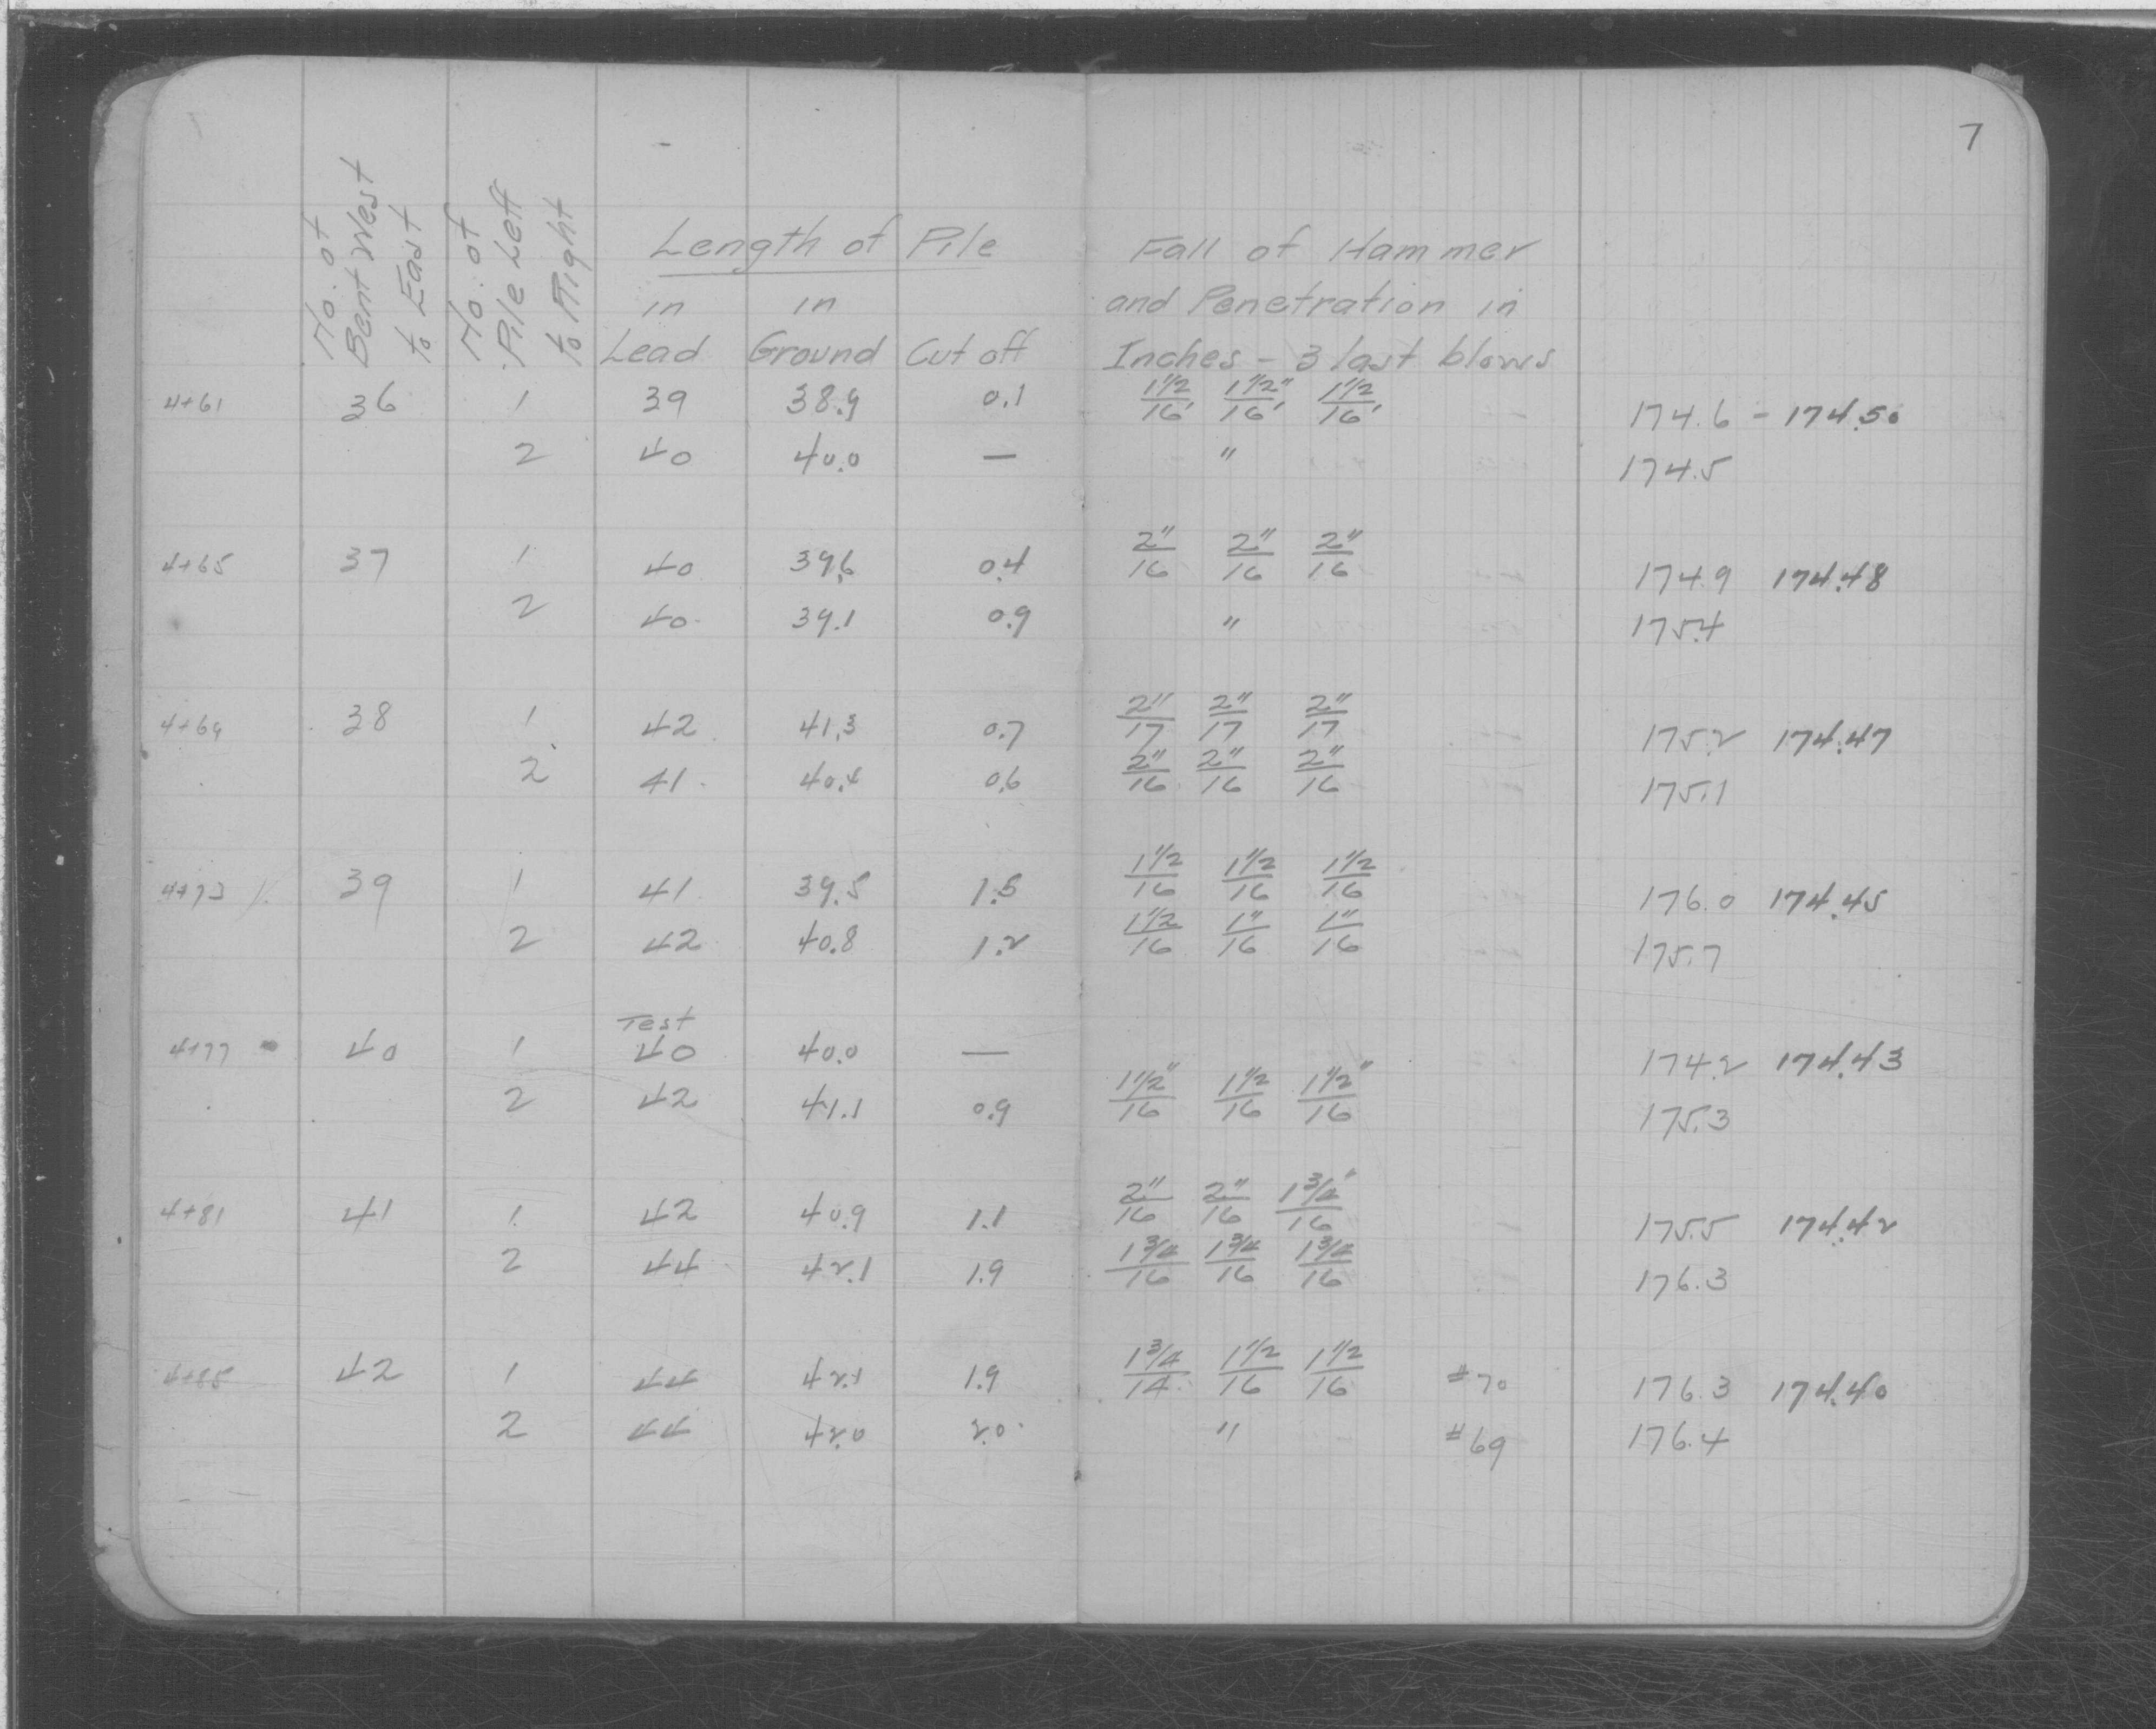 7
No. of Bent West to East
No. of Pile Left to Right
Length of Pile
in Lead
in Ground
Cut off
Fall of Hammer
and Penetration in
Inches - 3 last blows
4+61 36 1 39 38.9 0.1 1 1/2"/16', 1 1/2"/16', 1 1/2"/16' 174.6 - 174.50
2 40 40.0 — " 174.5
4+65 37 1 40 39.6 0.4 2"/16 2"/16 2"/16 174.9 174.48
2 40 39.1 0.9 " 175.4
4+69 38 1 42 41.3 0.7 2"/17 2"/17 2"/17 175.2 174.47
2 41 40.4 0.6 2"/16 2"/16 2"/16 175.1
4+73 39 1 41 39.5 1.5 1 1/2"/16 1 1/2"/16 1 1/2"/16 176.0 174.45
2 42 40.8 1.2 1 1/2/16 1"/16 1"/16 175.7
Test
4+77 40 1 40 40.0 — 174.2 174.43
2 42 41.1 0.9 1 1/2"/16 1 1/2/16 1 1/2"/16 175.3
4+81 41 1 42 40.9 1.1 2"/16 2"/16 1 3/4"/16 175.5 174.42
2 44 42.1 1.9 1 3/4/16 1 3/4/16 1 3/4/16 176.3
4+85 42 1 44 42.1 1.9 1 3/4/14 1 1/2/16 1 1/2/16 #70 176.3 174.40
2 44 42.0 2.0 " #69 176.4